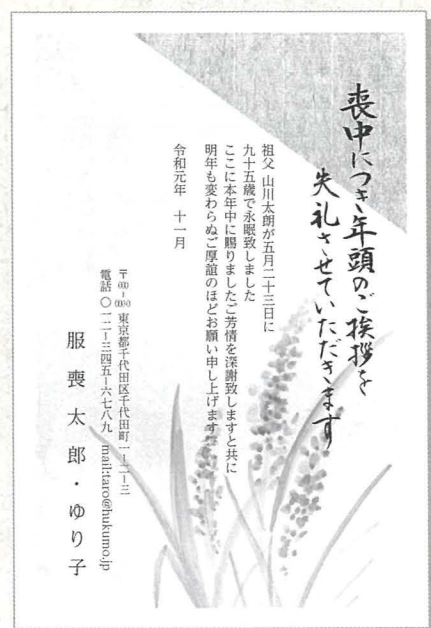 喪中につき年頭のご挨拶を
失礼させていただきます
祖父 山川太朗が五月二十三日に
九十五歳で永眠致しました
ここに本年中に賜りましたご芳情を深謝致しますと共に
明年も変わらぬご厚誼のほどお願い申し上げます
令和元年 十一月
〒000-0000 東京都千代田区千代田町一-二-三
電話 〇一二-三四五-六七八九 mail:taro@hukumo.jp
服喪太郎・ゆり子